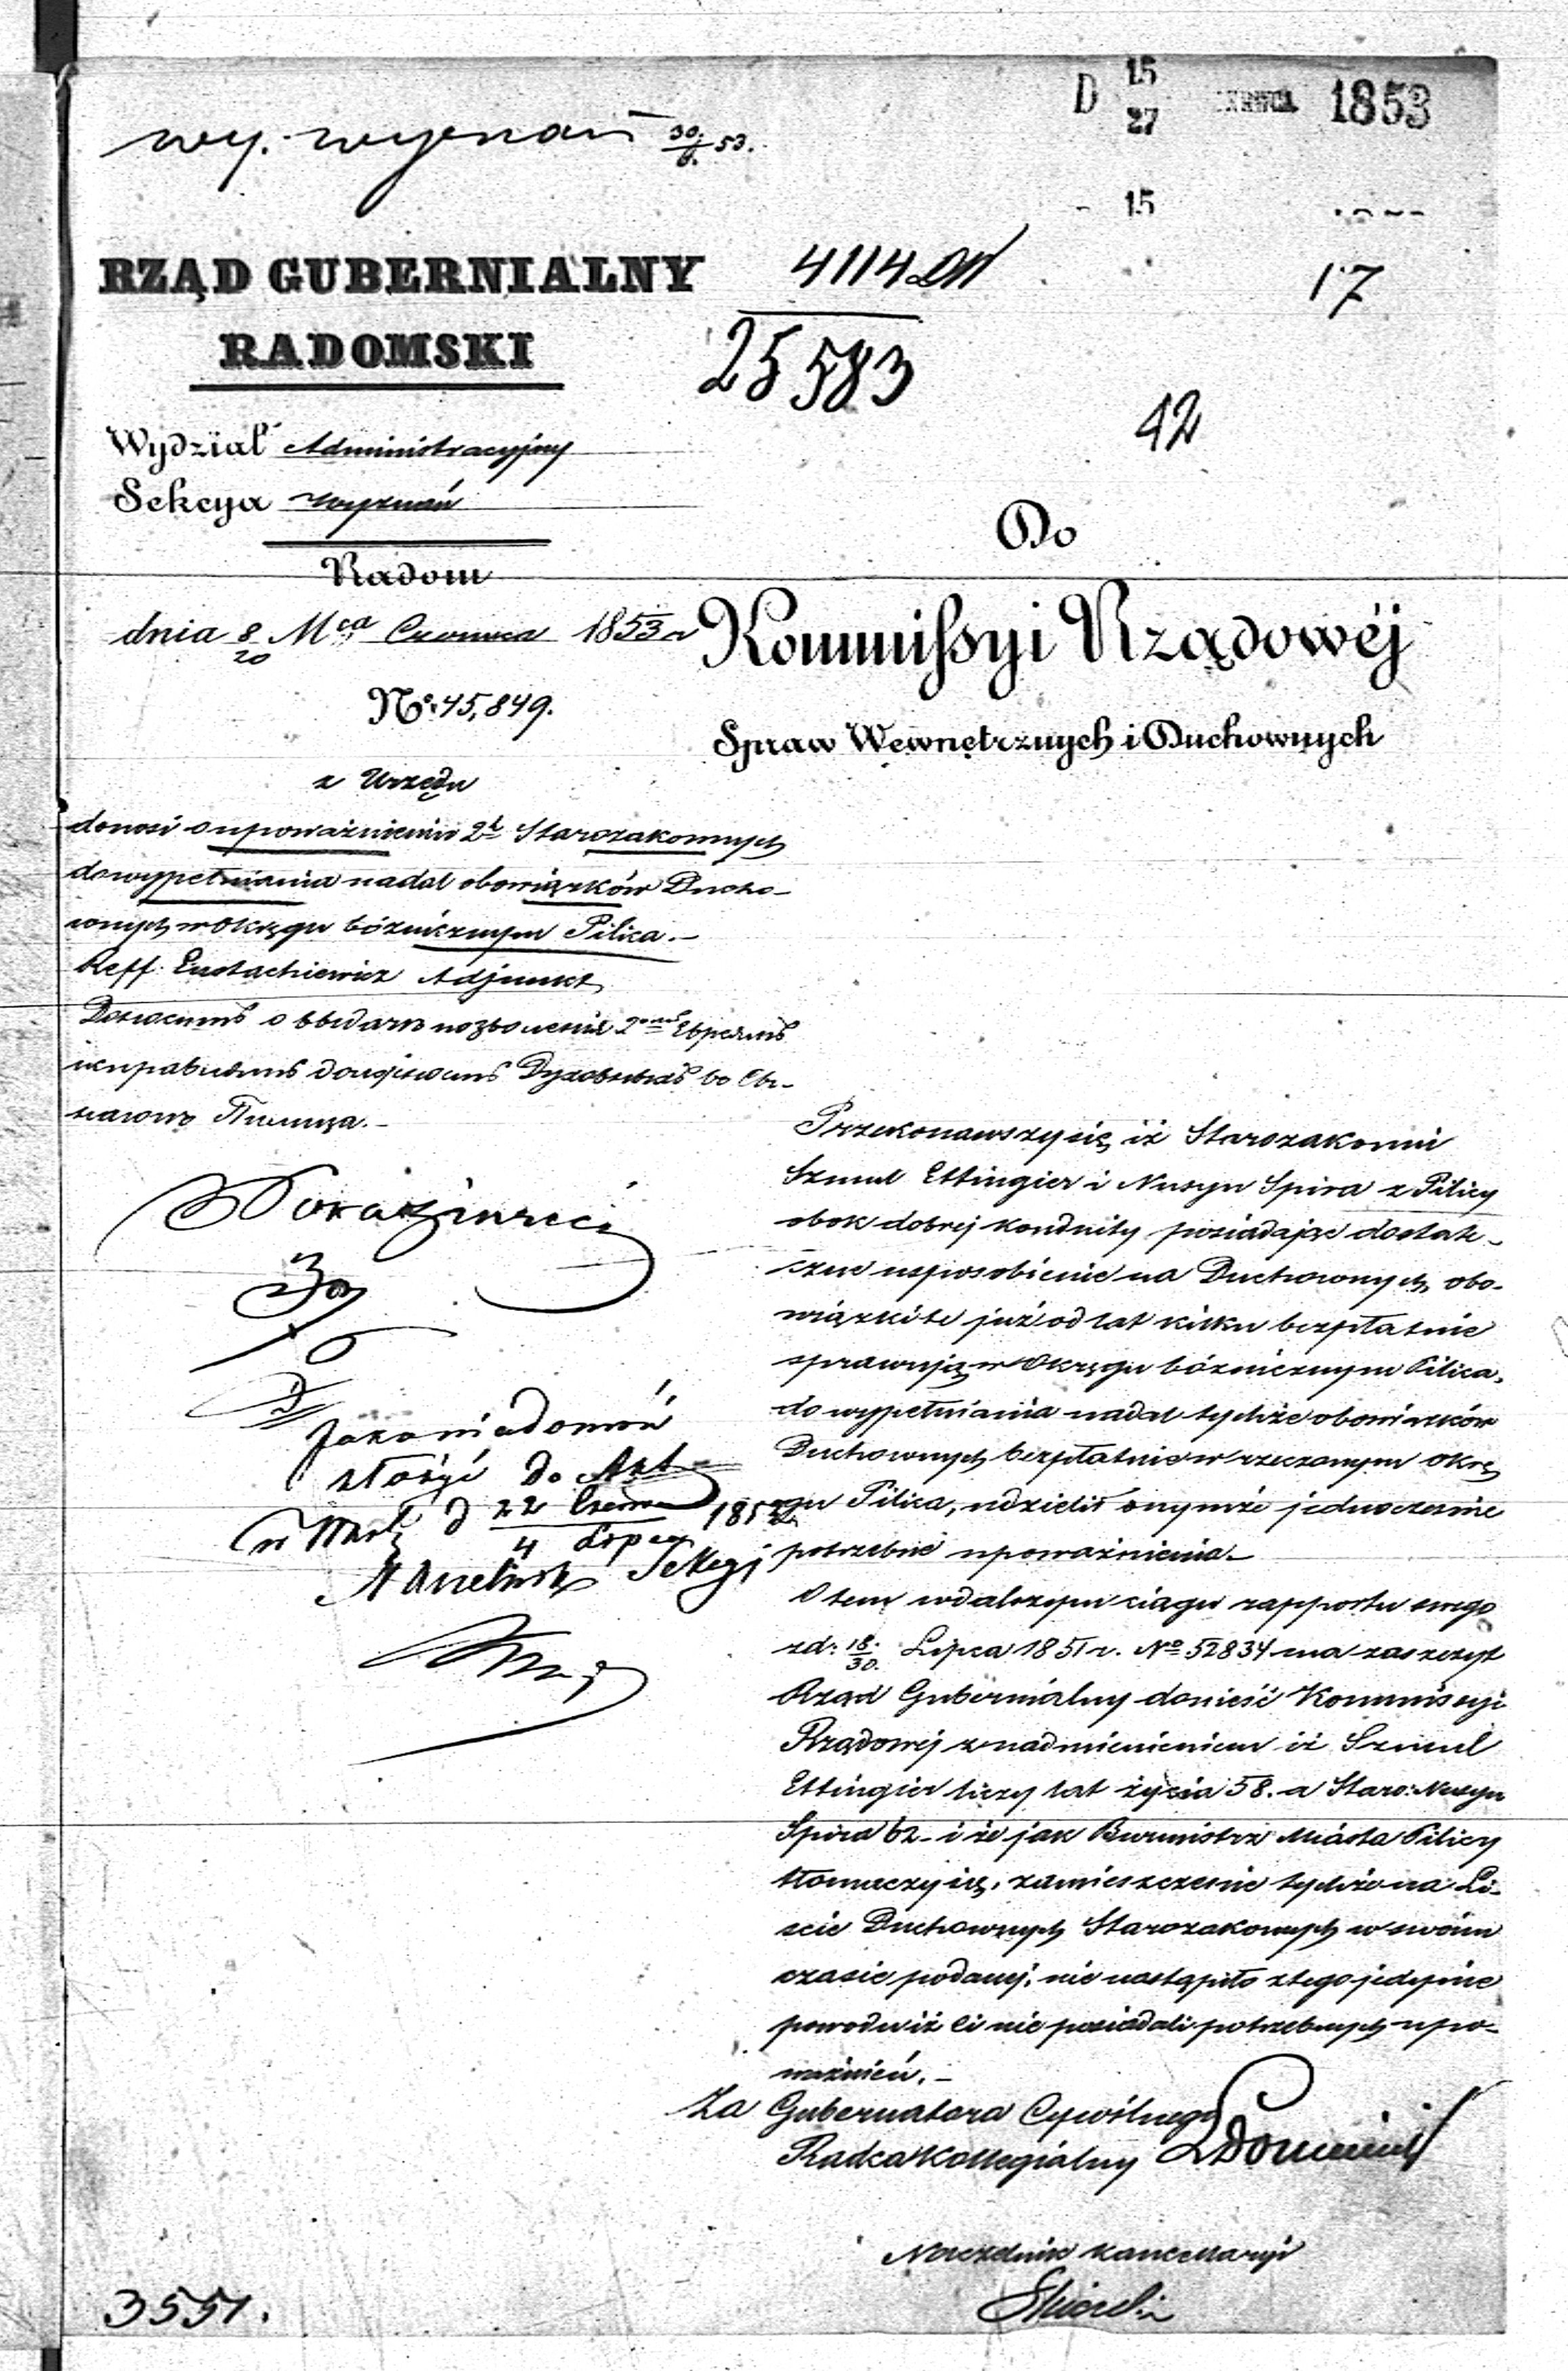 D 15/27 CZERWCA 1853
wy. wyznań 30/6. 53.
15
RZĄD GUBERNIALNY
RADOMSKI
4114
25583
17
42
Wydział Administracyjny
Sekcya Wyznań
Radom
dnia 8/20 Mca Czerwca 1853 r
No 45,849.
Do
Kommissyi Rządowéj
Spraw Wewnętrznych i Duchownych
z Urzędu
donosi o upoważnieniu 2ch Starozakonnych
do wypełniania nadal obowiązków Ducho-
wnych w Okręgu bóżnicznym Pilica.-
Reff: Eustachiewicz Adjunkt
Пилица.-
Jako wiadomość
złożyć do Akt
w d 22 Czerwca / 4 Lipca 185
Przekonawszy się, iż Starozakonni
Szmul Ettingier i Nusyn Spira z Pilicy
obok dobrej konduity posiadając dostate-
czne usposobienie na Duchownych, obo-
wiązki te już od lat kilku bezpłatnie
sprawują w Okręgu bóżnicznym Pilica,
do wypełniania nadal tychże obowiązków
Duchownych bezpłatnie w rzeczonym okrę
gu Pilica, udzielił onymże jednocześnie
potrzebne upoważnienia.-
O tem w dalszym ciągu rapportu swego
z d: 18/30. Lipca 1851 r. No 52834 ma zaszczyt
Rząd Gubernialny donieść Kommissyi
Rządowej z nadmienieniem iż Szmul
Ettingier liczy lat życia 58. a Staro: Nusyn
Spira 62 - i że jak Burmistrz Miasta Pilicy
tłomaczy się, zamieszczenie tychże na Li-
ście Duchownych Starozakonnych w swoim
czasie podanej, nie nastąpiło z tego jedynie
powodu iż ci nie posiadali potrzebnych upo-
ważnień.-
Za Gubernatora Cywilnego
Radca Kollegialny
Naczelnik Kancellaryi
3551.